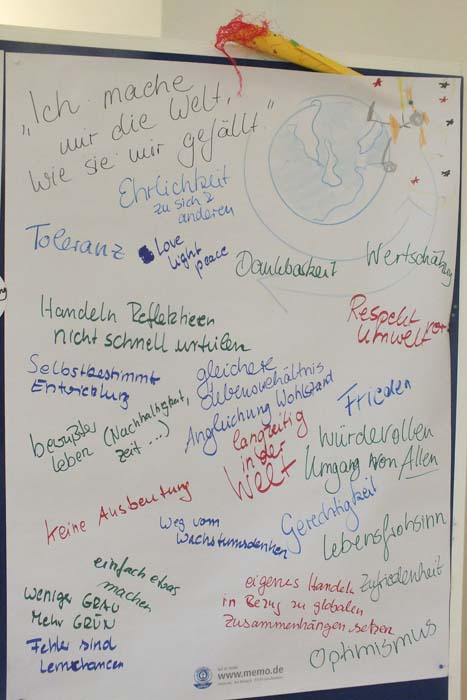 „Ich mache
mir die Welt,
wie sie mir gefällt"
Ehrlichkeit
zu sich &
anderen
Toleranz
Love
Light
peace
Dankbarkeit
Wertschätzung
Handeln Refletzieren
nicht schnell urteilen
Respekt vor
Umwelt
Selbstbestimmt
Entwicklung
gleichere
Lebensverhältnis
Angleichung Wohlstand
Frieden
bewußter
leben (Nachhaltigkeit,
Zeit ...)
langzeitig
in der
Welt
würdevollen
Umgang von Allen
keine Ausbeutung
Weg vom
Wachstumsdenken
Gerechtigkeit
Lebensfrohsinn
einfach etwas
machen
weniger GRAU
Mehr GRÜN
Fehler sind
Lernchancen
eigenes Handeln
in Bezug zu globalen
Zusammenhängen setzen
Zufriedenheit
Optimismus
www.memo.de